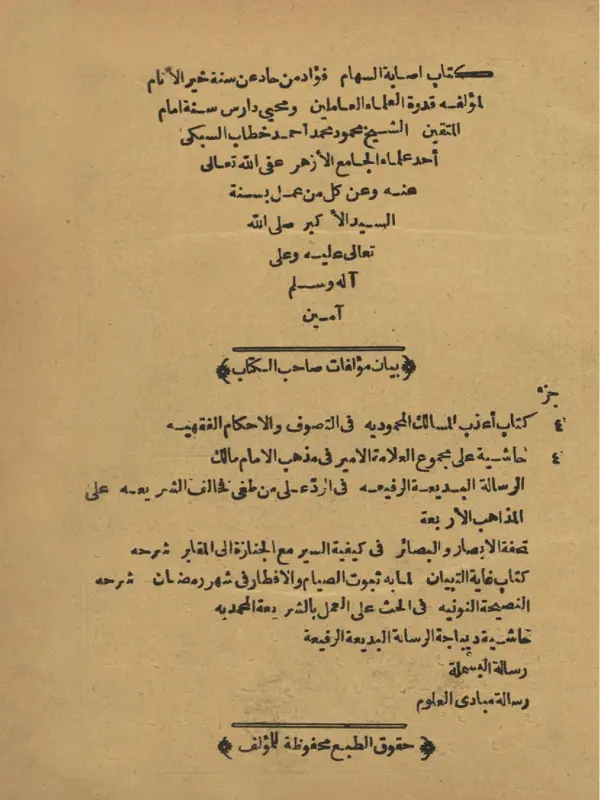 كتاب اصابة السهام فؤاد من حاد عن سنة خير الأنام
لمؤلفه قدوة العلماء العاملين ومحيي دارس سنة امام
المتقين الشيخ محمود محمد أحمد خطاب السبكى
أحد علماء الجامع الأزهر عفى الله تعالى
عنه وعن كل من عمل بسنة
السيد الأكبر صلى الله
تعالى عليه وعلى
آله وسلم
آمين
﴿ بيان مؤلفات صاحب الكتاب ﴾
جزء
٤ كتاب أعذب المسالك المحموديه فى التصوف والاحكام الفقهيه
٤ حاشية على مجموع العلامة الامير فى مذهب الامام مالك
الرسالة البديعة الرفيعه فى الرد على من طغى فخالف الشريعه على
المذاهب الأربعة
تحفة الابصار والبصائر فى كيفية السير مع الجنازة الى المقابر شرحه
كتاب غاية التبيان لما به ثبوت الصيام والافطار فى شهر رمضان شرحه
النصيحة النونيه فى الحث على العمل بالشريعة المحمديه
حاشية ديباجة الرسالة البديعة الرفيعة
رسالة البسملة
رسالة مبادى العلوم
﴿ حقوق الطبع محفوظة للمؤلف ﴾